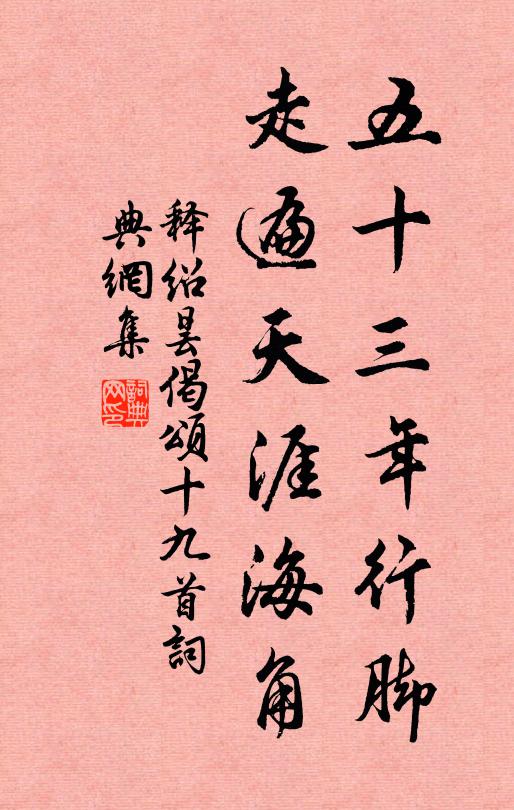 五十三年行脚
走遍天涯海角
释绍昙偈颂十九首詞
典網集
詞典网印